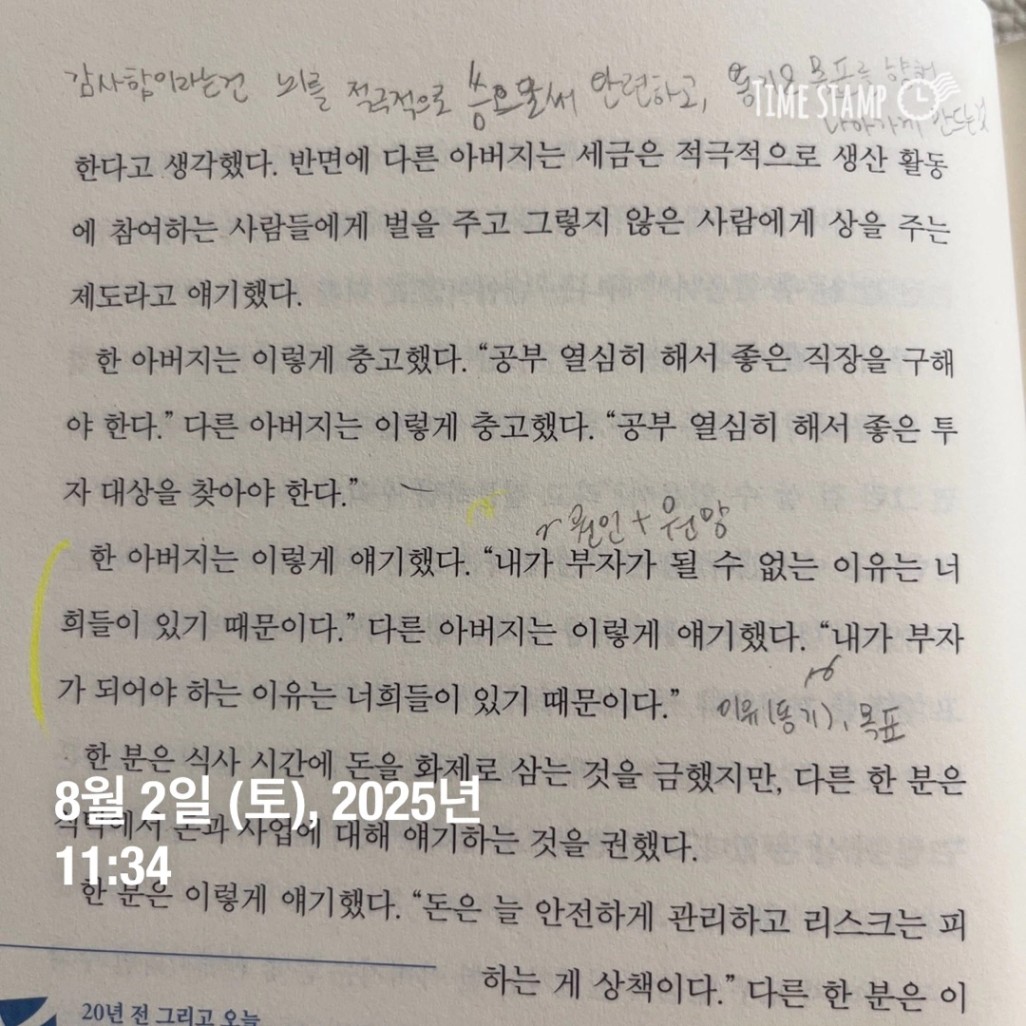 감사함이라는건 뇌를 적극적으로 씀으로써 단련하고, 동기와 목표를 향해
TIME STAMP
나아가게 만드는것
한다고 생각했다. 반면에 다른 아버지는 세금은 적극적으로 생산 활동
에 참여하는 사람들에게 벌을 주고 그렇지 않은 사람에게 상을 주는
제도라고 얘기했다.
한 아버지는 이렇게 충고했다. “공부 열심히 해서 좋은 직장을 구해
야 한다.” 다른 아버지는 이렇게 충고했다. “공부 열심히 해서 좋은 투
자 대상을 찾아야 한다.”
원인 + 원망
한 아버지는 이렇게 얘기했다. “내가 부자가 될 수 없는 이유는 너
희들이 있기 때문이다.” 다른 아버지는 이렇게 얘기했다. “내가 부자
가 되어야 하는 이유는 너희들이 있기 때문이다.”
이유(동기), 목표
한 분은 식사 시간에 돈을 화제로 삼는 것을 금했지만, 다른 한 분은
8월 2일 (토), 2025년
식탁에서 돈과 사업에 대해 얘기하는 것을 권했다.
11:34
한 분은 이렇게 얘기했다. “돈은 늘 안전하게 관리하고 리스크는 피
하는 게 상책이다.” 다른 한 분은 이
20년 전 그리고 오늘